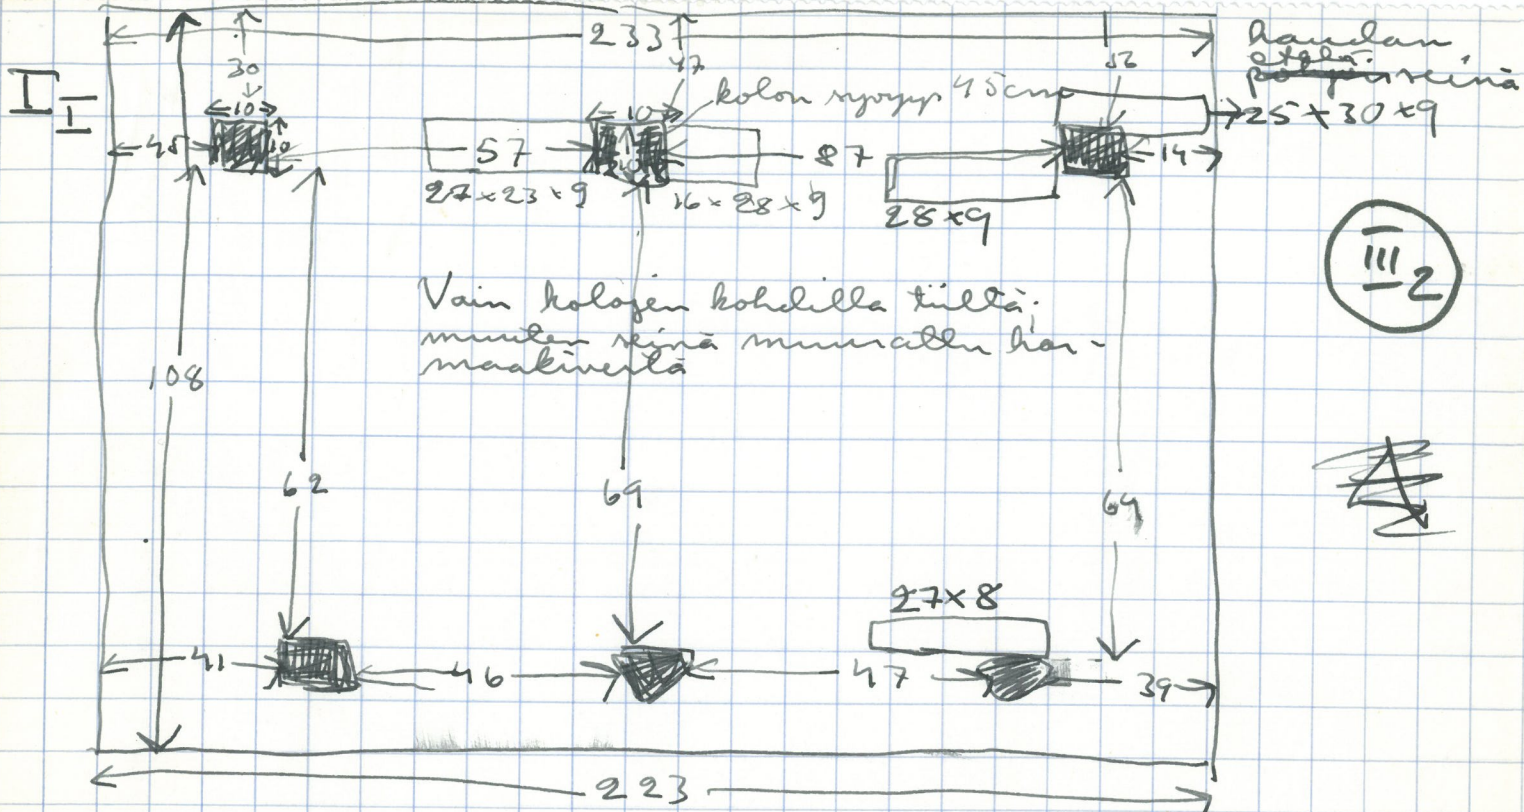 233
haudan
etelä-
seinä
I I
30
47
10
10
10
kolon syvyys 45cm
25 x 30 x 9
45
57
87
14
27 x 23 x 9
16 x 28 x 9
28 x 9
III 2
Vain kolojen kohdilla tiiltä;
muuten seinä muurattu har-
maakivestä
108
62
69
64
27 x 8
41
46
47
39
223